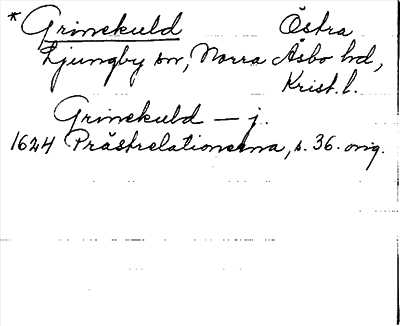 * Grinekuld Östra
Ljungby sn, Norra Åsbo hd,
Krist. l.
Grinekuld — j.
1624 Prästrelationerna, s. 36. orig.